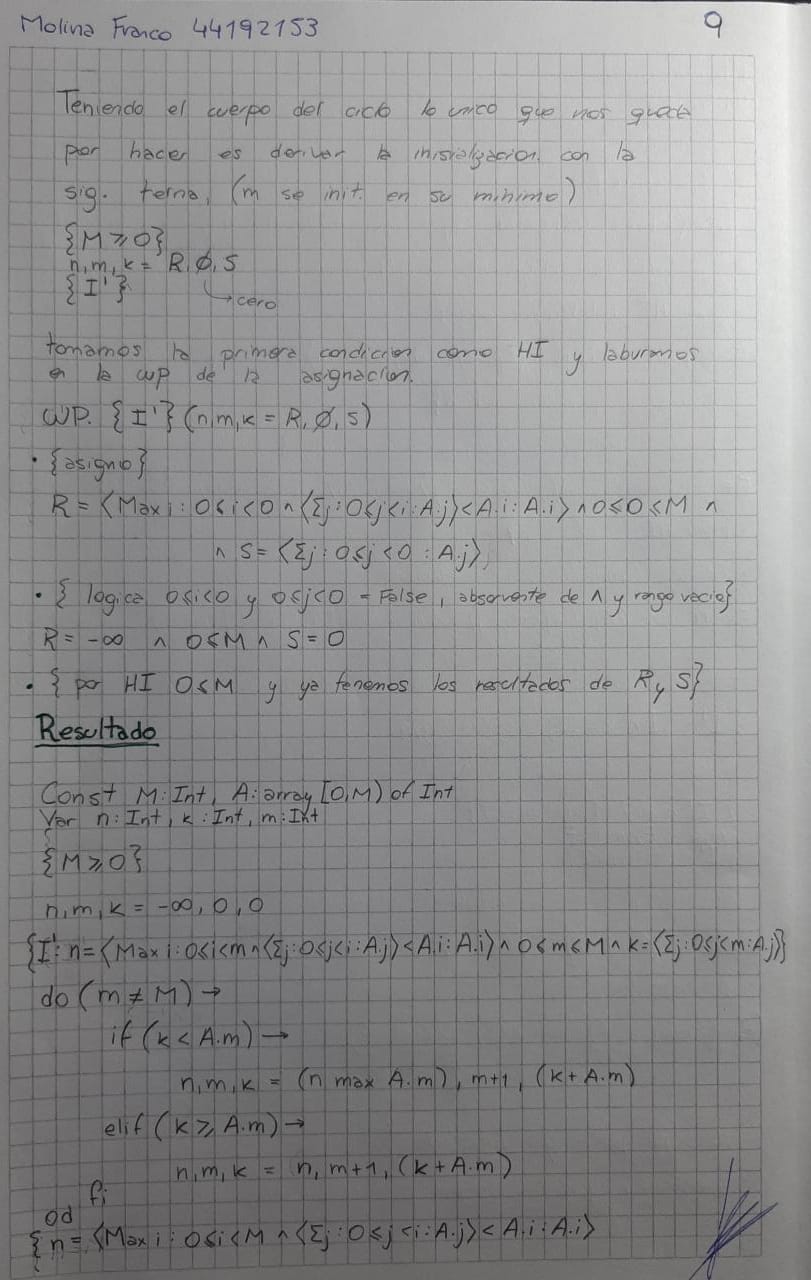 Molina Franco 44192153
9
Teniendo el cuerpo del ciclo lo unico que nos queda
por hacer es derivar la inisialgacion con la
sig. terna, (m se init. en su minimo)
{M ⩾ 0}
n,m,k = R, Ø, S
{I'}
→cero
tomamos la primera condicion como HI y laburamos
en la wp de la asignacion.
WP. {I'} (n,m,k = R, Ø, S)
• {asigno}
R = ⟨Max i : 0⩽i<0 ∧ ⟨Σj : 0⩽j<i : A.j⟩ < A.i : A.i⟩ ∧ 0⩽0⩽M ∧
∧ S = ⟨Σj : 0⩽j<0 : A.j⟩
• { logica 0⩽i<0 y 0⩽j<0 = False, absorvente de ∧ y rango vacio}
R = -∞ ∧ 0⩽M ∧ S = 0
• { por HI 0⩽M y ya tenemos los resultados de R y S}
Resultado
Const M : Int, A : array [0,M) of Int
Var n : Int, k : Int, m : Int
{M ⩾ 0}
n,m,k = -∞, 0, 0
{I': n = ⟨Max i : 0⩽i<m ∧ ⟨Σj : 0⩽j<i : A.j⟩ < A.i : A.i⟩ ∧ 0⩽m⩽M ∧ k = ⟨Σj : 0⩽j<m : A.j⟩}
do (m ≠ M) →
if (k < A.m) →
n,m,k = (n max A.m), m+1, (k + A.m)
elif (k ⩾ A.m) →
n,m,k = n, m+1, (k+A.m)
fi
od
{ n = ⟨Max i : 0⩽i<M ∧ ⟨Σj : 0⩽j<i : A.j⟩ < A.i : A.i⟩